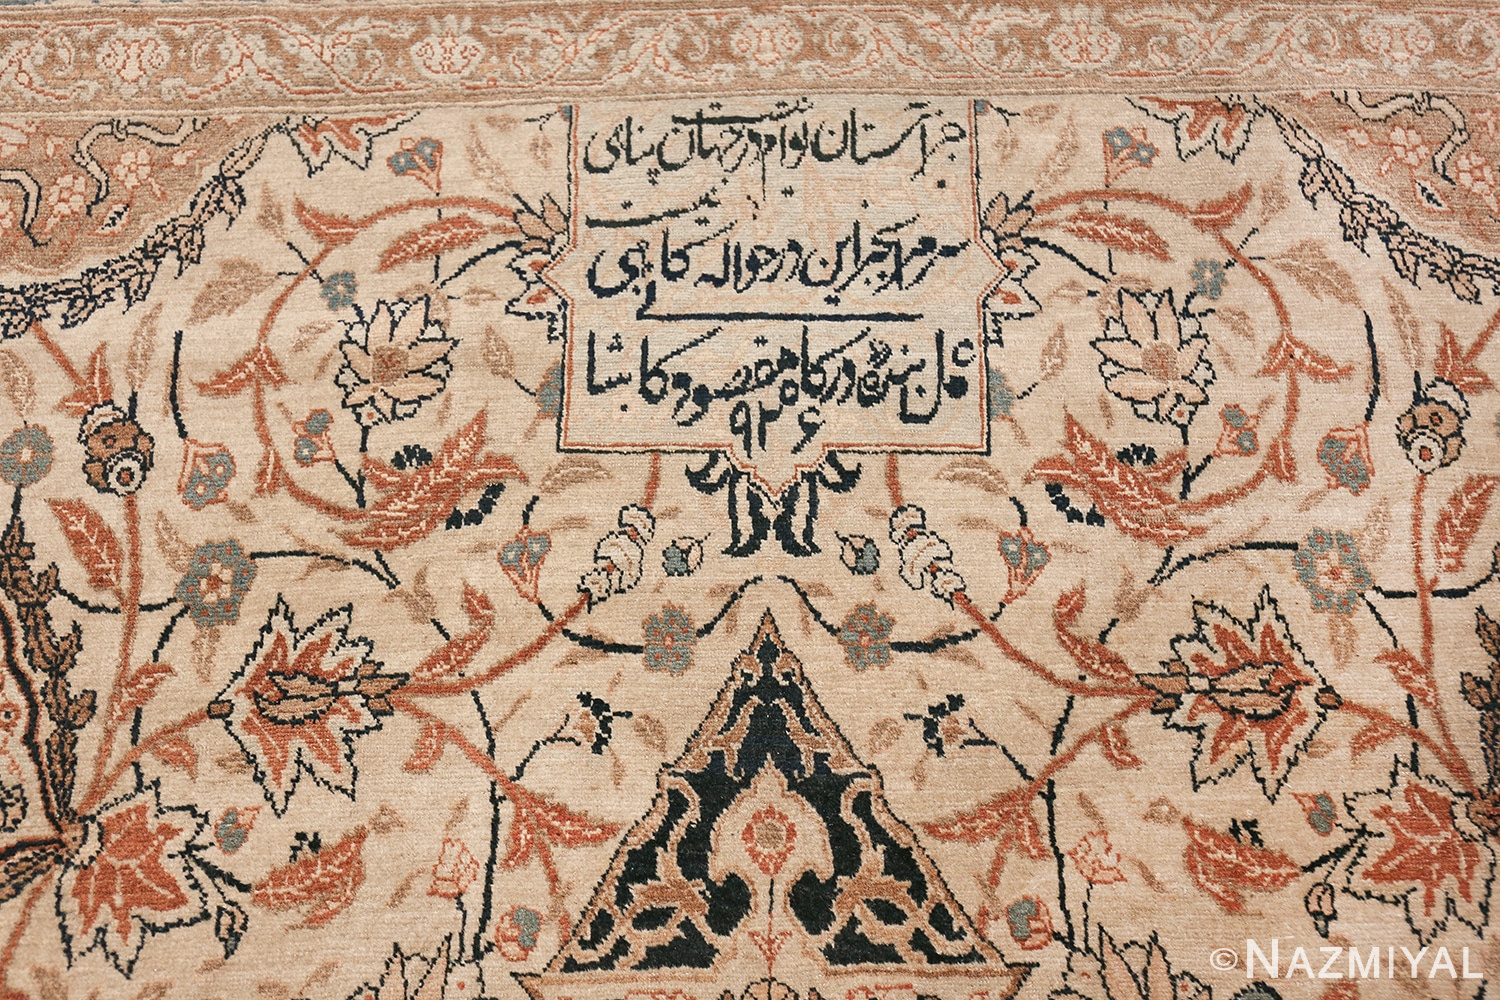 جز آستان توام در جهان پناهی نیست
سر مرا بجز این در حواله گاهی نیست
عمل بنده درگاه مقصود کاشانی
۹۴۶
© NAZMIYAL